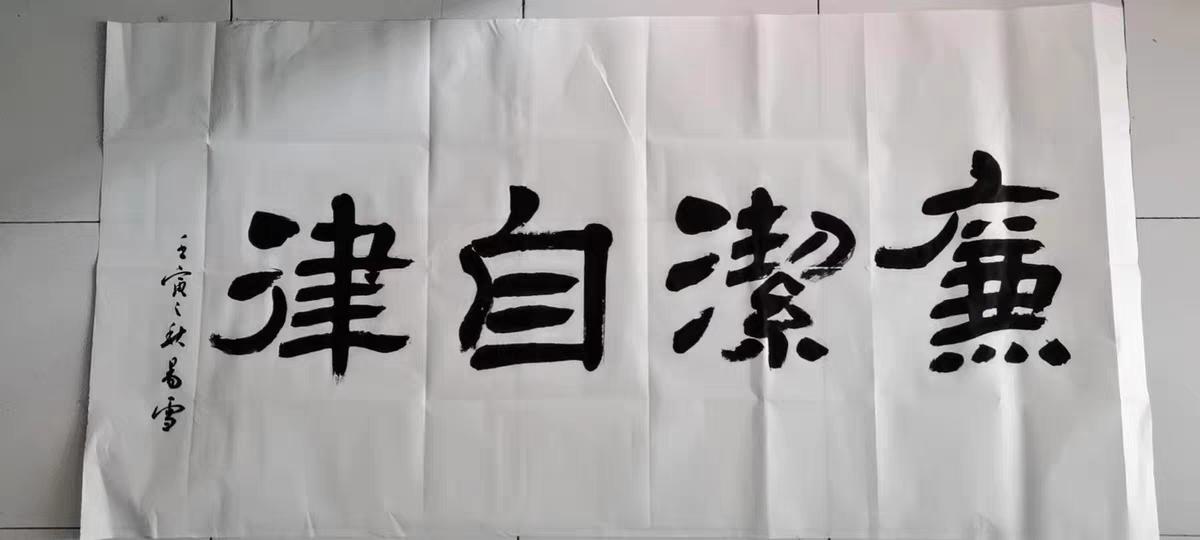 廉潔自律
壬寅之秋易雪